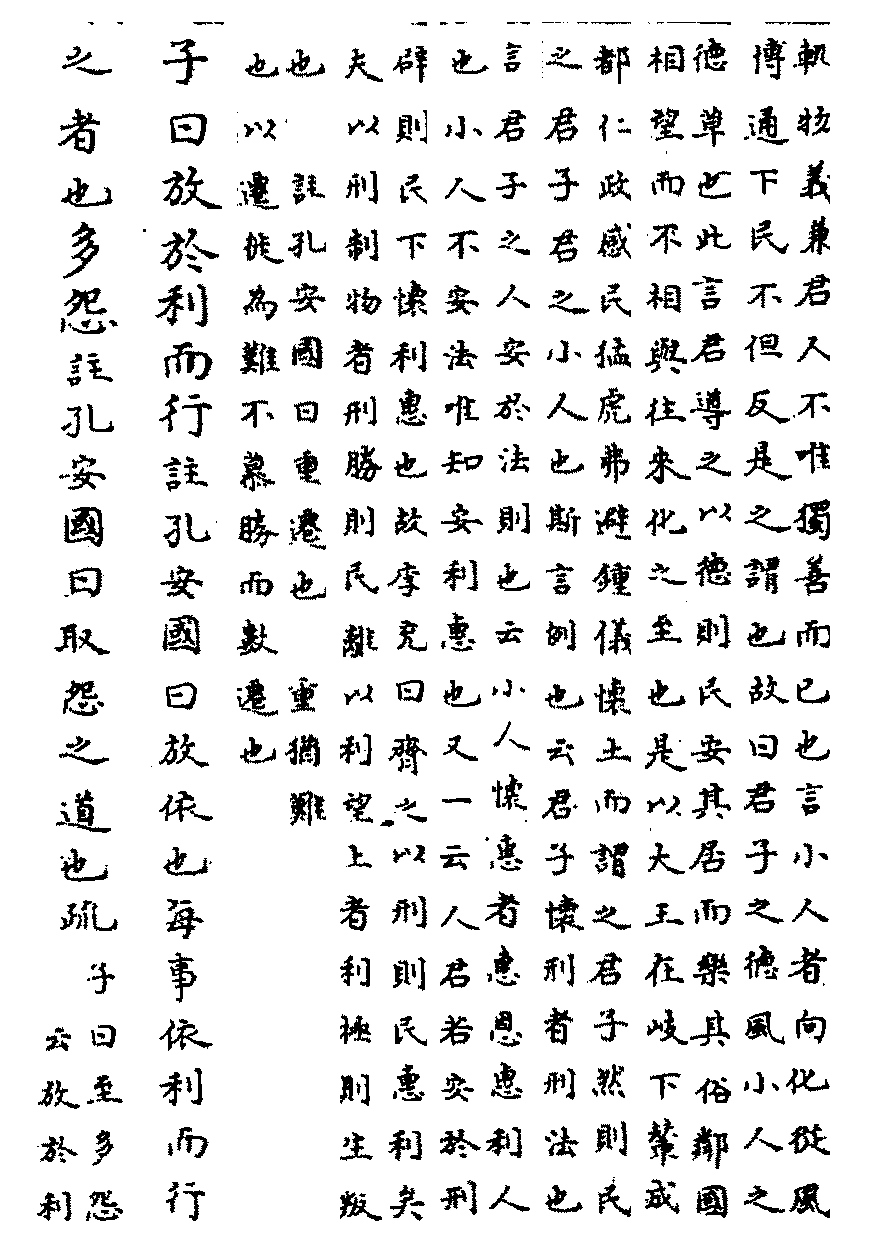 軌物義兼君人不唯獨善而已也言小人者向化從風
博通下民不但反是之謂也故曰君子之德風小人之
德草也此言君導之以德則民安其居而樂其俗鄰國
相望而不相與往來化之至也是以大王在岐下輦成
都仁政感民猛虎弗避鍾儀懷土而謂之君子然則民
之君子君之小人也斯言例也云君子懷刑者刑法也
言君子之人安於法則也云小人懷惠者惠恩惠利人
也小人不安法唯知安利惠也又一云人君若安於刑
辟則民下懷利惠也故李充曰齊之以刑則民惠利矣
夫以刑制物者刑勝則民離以利望上者利極則生叛
也 註孔安國曰重遷也 重猶難
也以遷徙為難不慕勝而數遷也
子曰放於利而行註孔安國曰放依也每事依利而行
之者也多怨註孔安國曰取怨之道也疏
子曰至多怨
云放於利